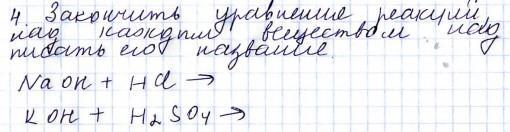 4. Закончить уравнение реакции
над каждым веществом над
писать его название.
NaOH + HCl →
KOH + H₂SO₄ →